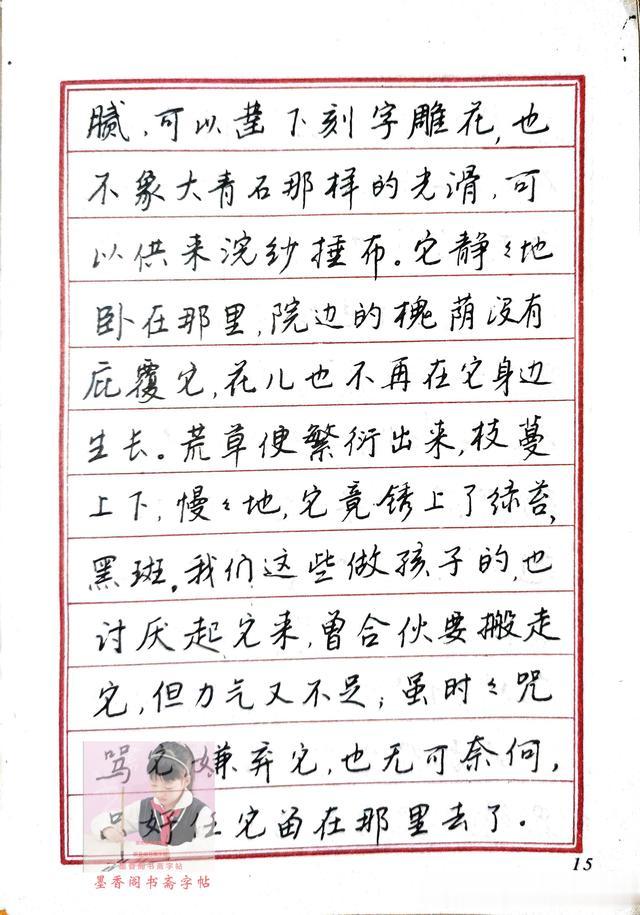 腻，可以凿下刻字雕花，也
不象大青石那样的光滑，可
以供来浣纱捶布。它静々地
卧在那里，院边的槐荫没有
庇覆它，花儿也不再在它身边
生长。荒草便繁衍出来，枝蔓
上下，慢々地，它竟锈上了绿苔，
黑斑。我们这些做孩子的，也
讨厌起它来，曾合伙要搬走
它，但力气又不足；虽时々咒
骂它嫌弃它，也无可奈何，
只好任它留在那里去了。
15
墨香阁书斋字帖
墨香阁书斋字帖